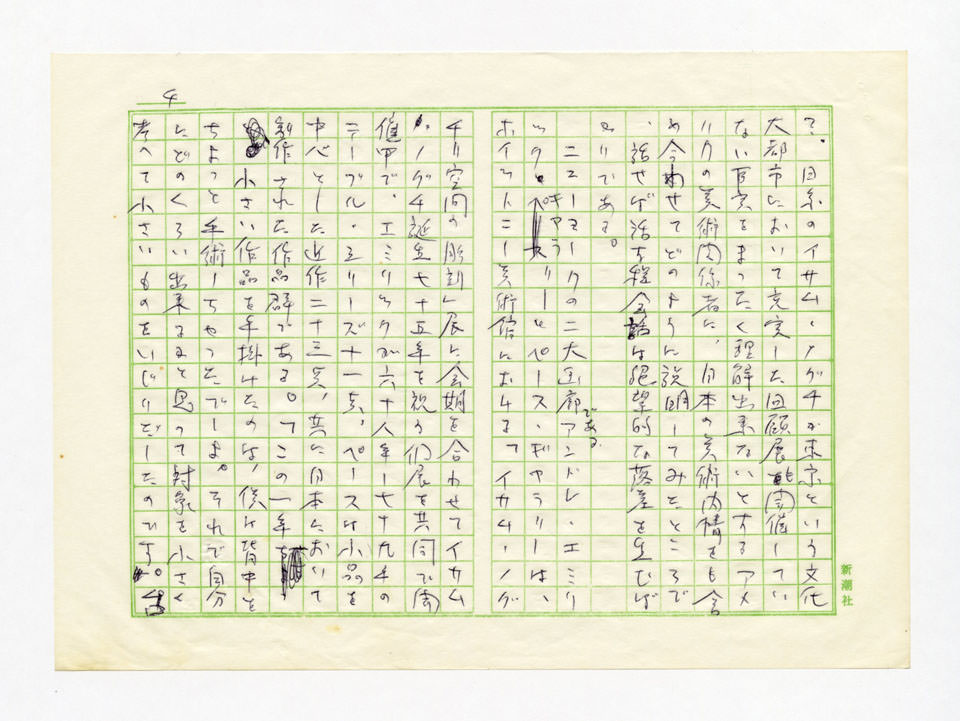 4
て、日系のイサム・ノグチが東京という文化
大都市において充実した回顧展も開催してい
ない現実をまったく理解出来ないとするアメ
リカの美術関係者に、日本の美術内情をも含
め合わせてどのように説明してみたところで
、話せば話す程会話は絶望的な落差を生むば
かりである。
ニューヨークの二大画廊であるアンドレ・エミリ
ックギャラリーとペース・ギャラリーは、
ホイットニー美術館におけるイサム・ノグ
チの空間の彫刻展に会期を合わせてイサム
・ノグチ誕生七十五年を祝う個展を共同で開
催中で、エミリックが六十八年〜七十九年の
テーブル・シリーズ十一点、ペースは小品を
中心とした近作二十三点、共に日本において
制作された作品群である。「この一年
小さい作品を手掛けたのは、僕は背中を
ちょっと手術しちゃったでしょ。それで自分
にどのくらい出来るかと思って対象を小さく
考えて小さいものをいじりだしたのです。
新潮社